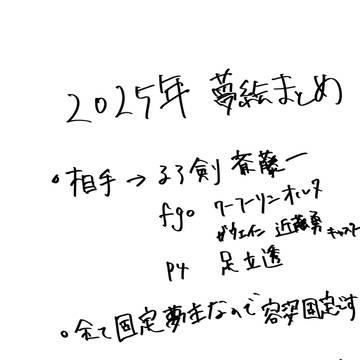 2025年 夢絵まとめ
。相手→るろ剣 斎藤一
fgo クーフーリンオルタ
ガウェイン 近藤勇 キャスター
P4 足立透
。全て固定夢主なので容姿固定です